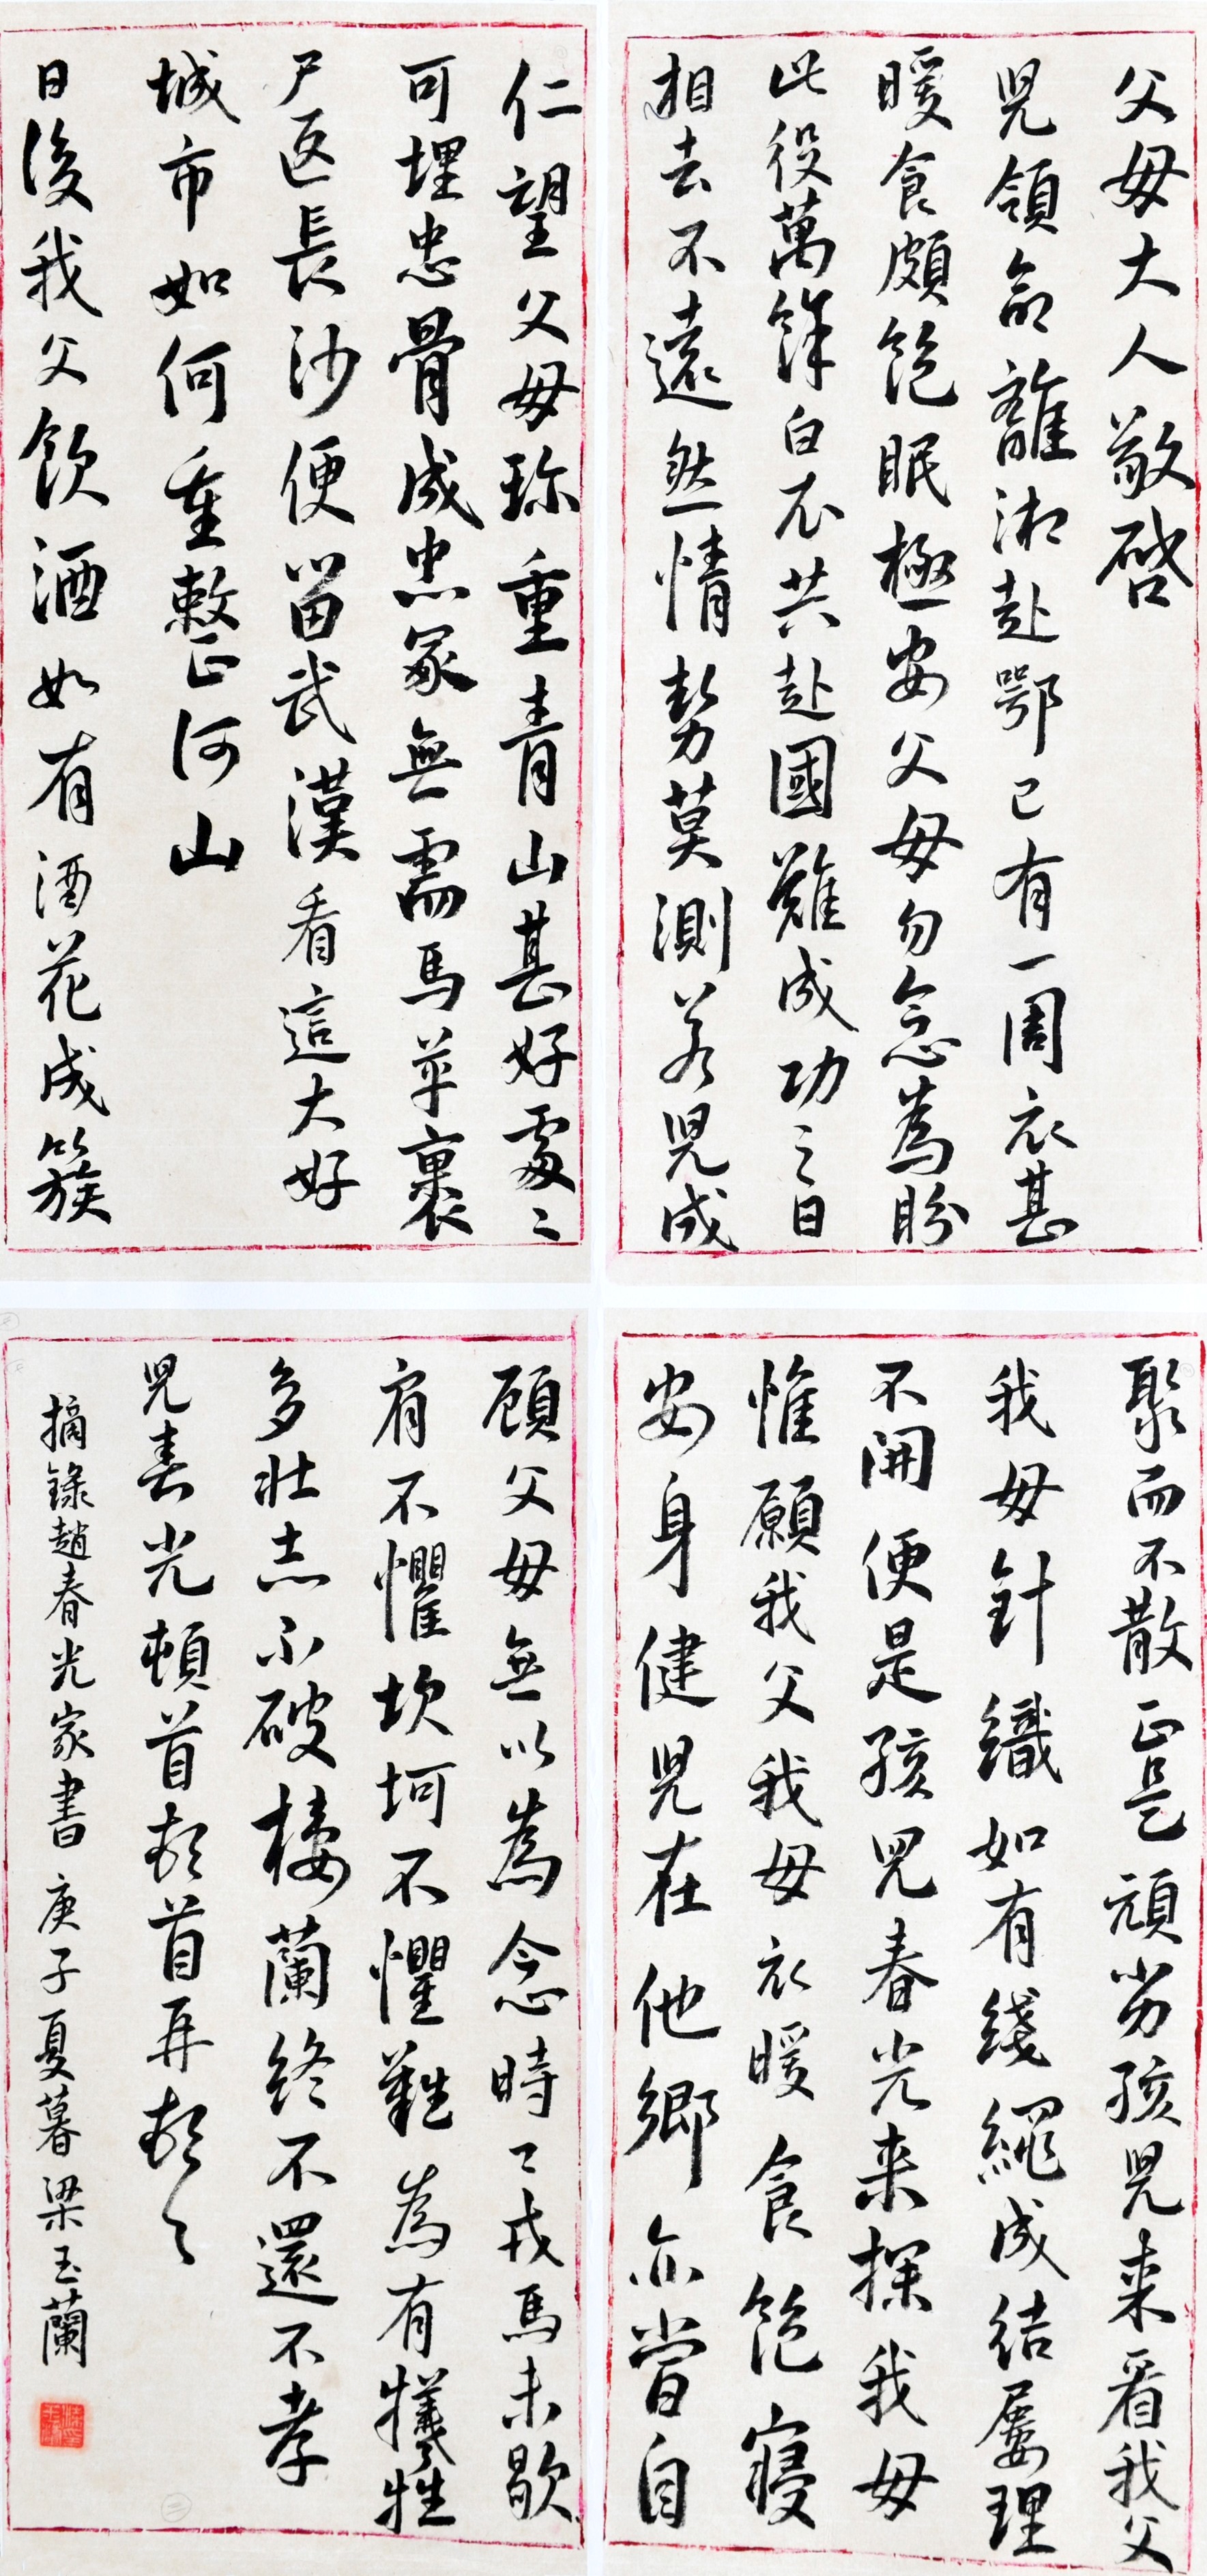 父母大人敬啓
兒領命離湘赴鄂已有一周衣甚
暖食頗飽眠極安父母勿念為盼
此役萬餘白衣共赴國難成功之日
相去不遠然情勢莫測若兒成
仁望父母珍重青山甚好處々
可埋忠骨成忠冢無需馬革裹
尸返長沙便留武漢看這大好
城市如何重整河山
日後我父飲酒如有酒花成簇
聚而不散正是頑劣孩兒来看我父
我母針織如有綫繩成結屡理
不開便是孩兒春光来探我母
惟願我父我母衣暖食飽寢
安身健兒在他鄉亦當自
顧父母無以為念時々戎馬未歇
肩不懼坎坷不懼難為有犧牲
多壯志不破樓蘭終不還不孝
兒春光頓首頓首再頓々
摘錄趙春光家書 庚子夏暮梁玉蘭